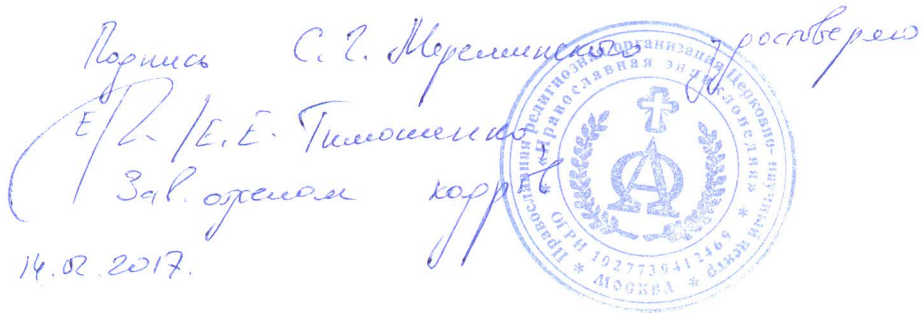 Подпись С. Г. Мереминского удостоверяю
/Е. Е. Тимошенко
Зав. отделом кадров
14.02.2017.
Православная религиозная организация Церковно-научный центр
«Православная энциклопедия»
ОГРН 1027739412469
* МОСКВА *